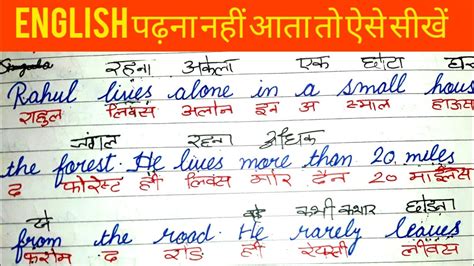 ENGLISH पढ़ना नहीं आता तो ऐसे सीखें
रहना अकेला एक छोटा
Rahul lives alone in a small hous
राहुल लिवस अलोन इन अ स्माल हाऊस
जंगल रहना अधिक
the forest. He lives more than 20 miles
द फोरेस्ट ही लिवस मोर दैन 20 माईलस
से कभी कभार छोड़ना
from the road. He rarely leaves
फरोम द रोड ही रेयरली लीवस